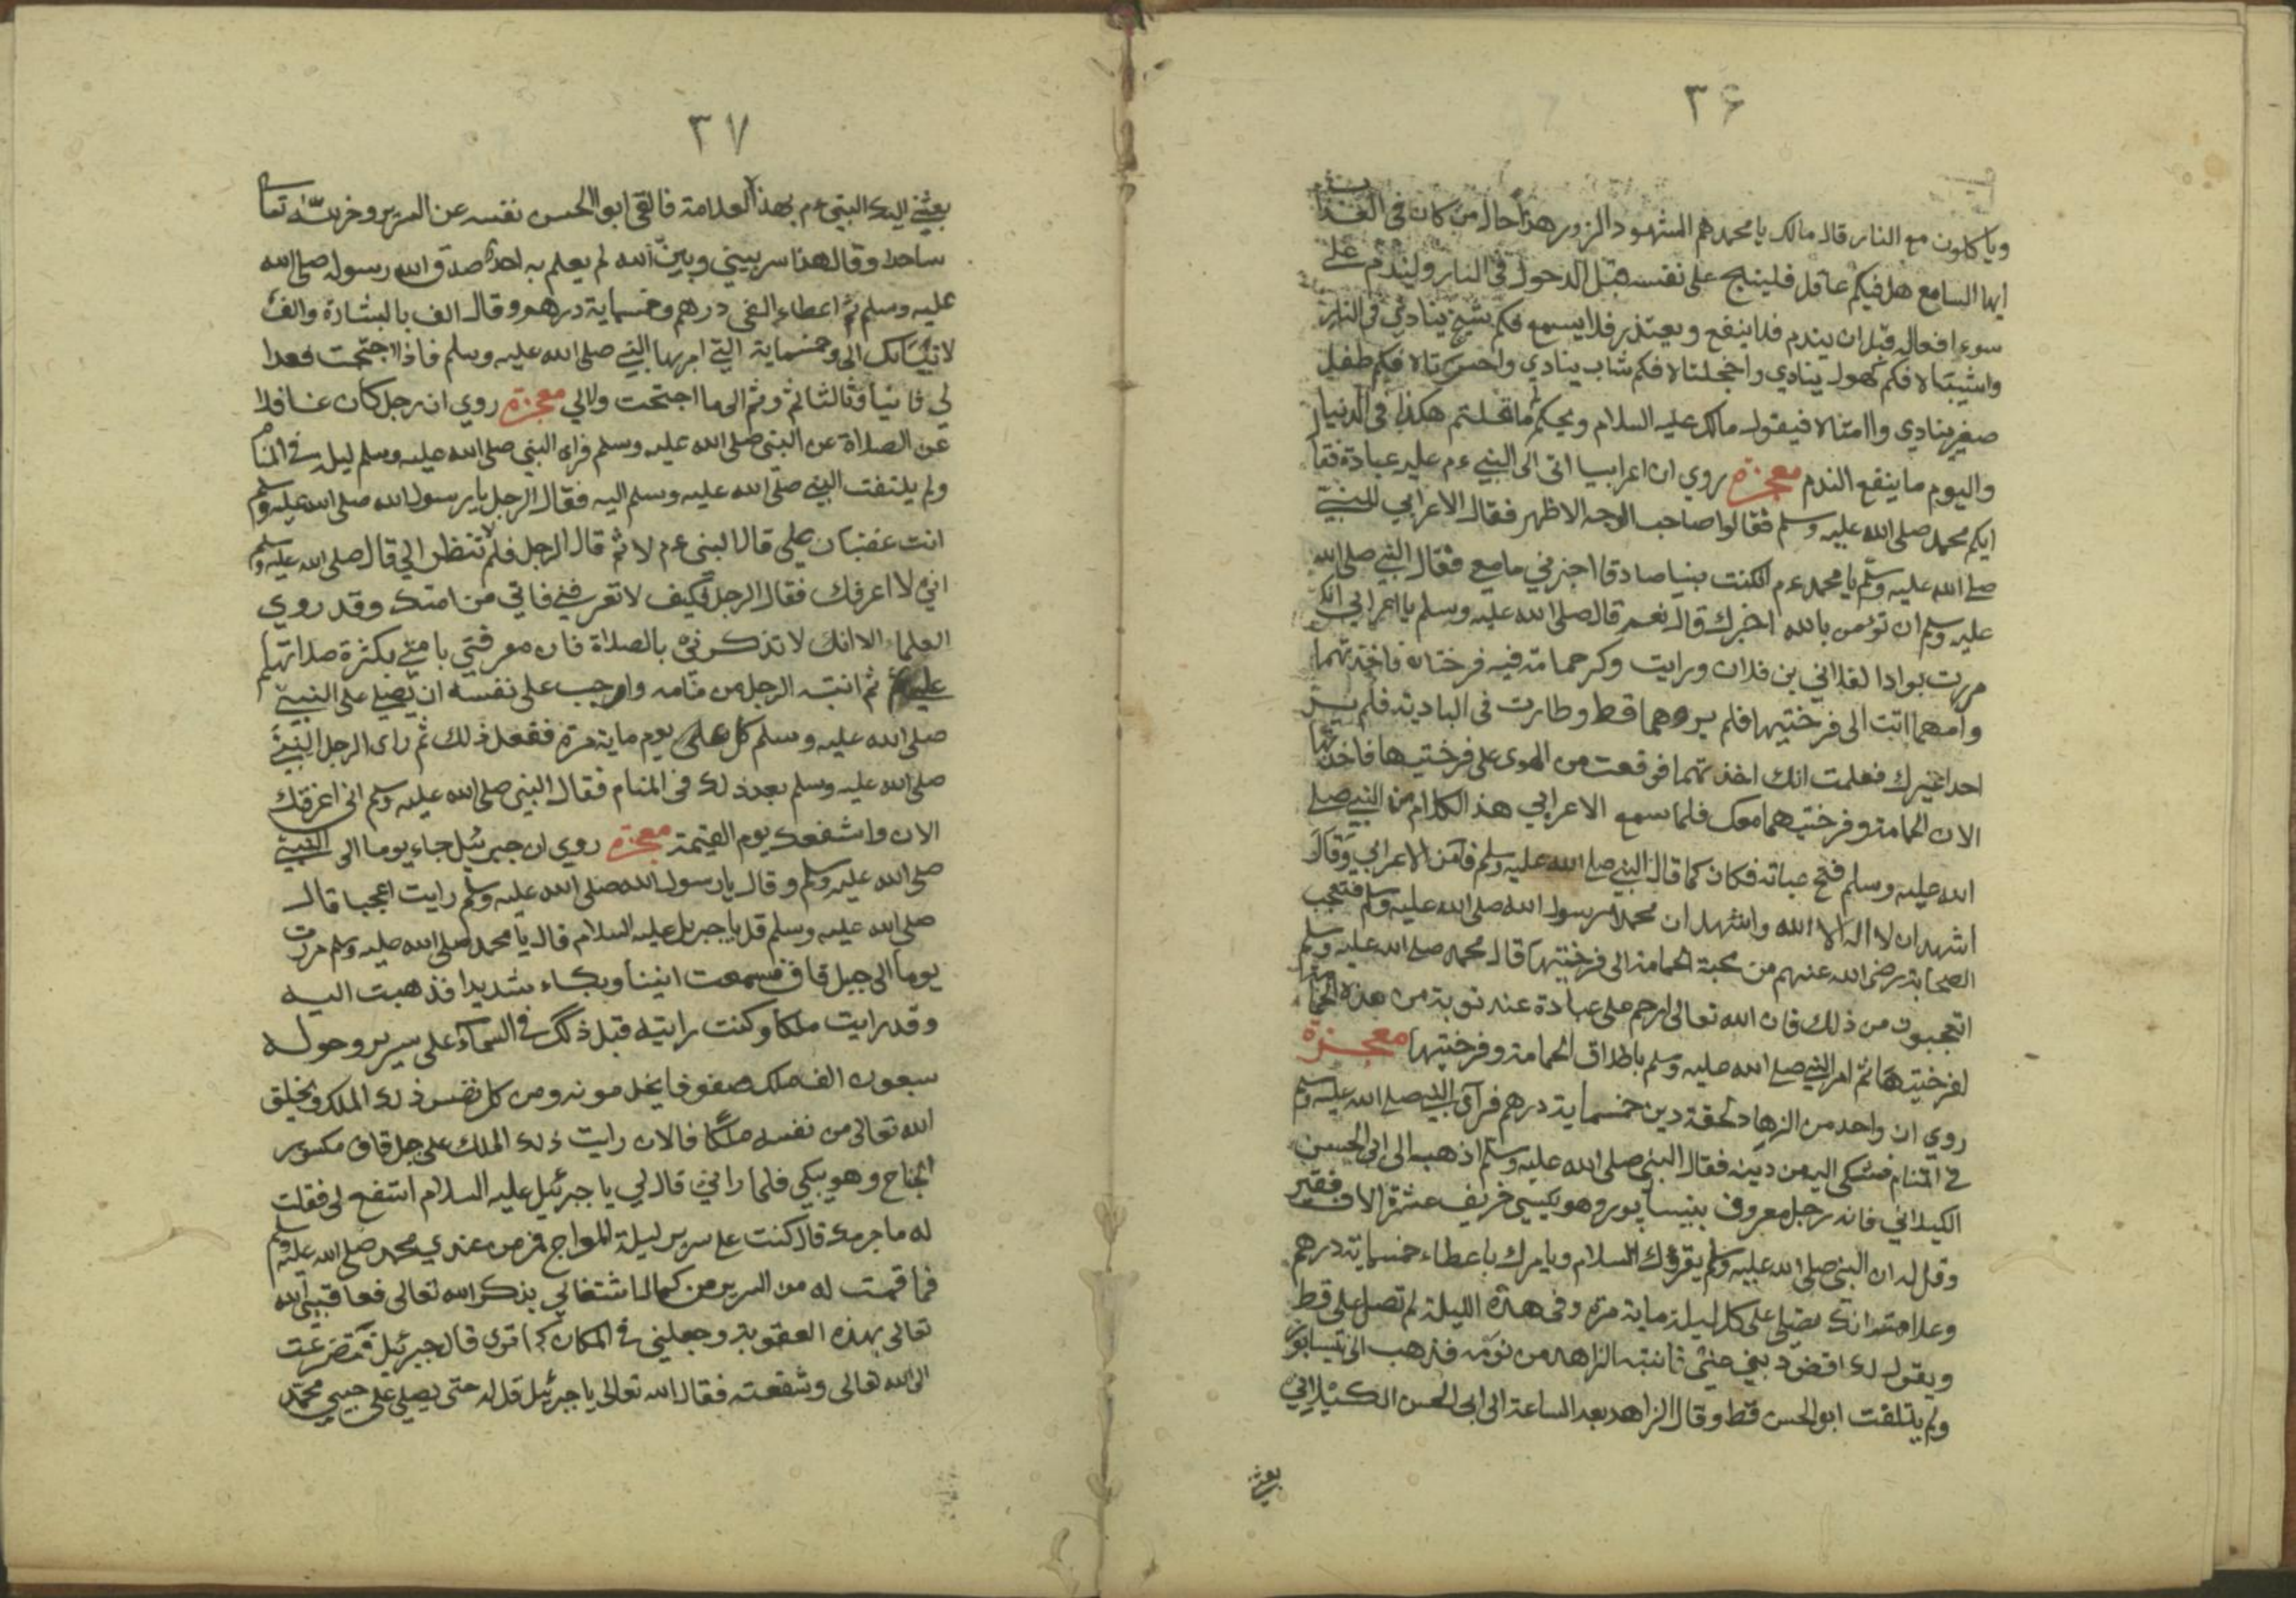 ٣۶
وياكلون مع النار قال مالك يا محمد هم الشهود الزور هذا حال من كان فى العذاب
ايها السامع هل فيكم عاقل فلينج على نفسه قبل الدخول فى النار وليندم على
سوء افعاله قبل ان يندم فلا ينفع ويعتذر فلا يسمع فكم شيخ ينادي فى النار
واشيبتاه فكم كهول ينادي واخجلتاه فكم شاب ينادي واحسرتاه فكم طفل
صغير ينادي واامتاه فيقول مالك عليه السلام ويحكم ما فعلتم هكذا فى الدنيا
واليوم ما ينفع الندم معجزة روي ان اعرابيا اتى الى النبي ءم عليه عباءة فقال
ايكم محمد صلى الله عليه وسلم فقالوا صاحب الوجه الاظهر فقال الاعرابي للنبي
صلى الله عليه وسلم يا محمد ءم ان كنت نبيا صادقا اخبرني ما معي فقال النبي صلى الله
عليه وسلم ان تؤمن بالله اخبرك قال نعم قال صلى الله عليه وسلم يا اعرابي انك
مررت بوادا لفلاني بن فلان ورايت وكر حمامة فيه فرختان فاخذتهما
وامهما اتت الى فرختيها فلم يروهما قط وطارت فى البادية فلم يــر
احدا غيرك فعلمت انك اخذتهما فوقعت من الهوى على فرختيها فاخذتها
الان الحمامة وفرختيهما معك فلما سمع الاعرابي هذ الكلام من النبي صلى
الله عليه وسلم فتح عباته فكان كما قال النبي صلى الله عليه وسلم فآمن الاعرابي وقال
اشهد ان لا اله الا الله واشهد ان محمدا رسول الله صلى الله عليه وسلم فتعجب
الصحابة رضى الله عنهم من محبة الحمامة الى فرختيها قال محمد صلى الله عليه وسلم
اتعجبون من ذلك فان الله تعالى ارحم على عبادة عند توبة من هذه الحمامة
لفرختيها ثم امر النبي صلى الله عليه وسلم باطلاق الحمامة وفرختيها معجزة
روي ان واحد من الزهاد لحقة دين خمسماية درهم فرآى النبي صلى الله عليه وسلم
في المنام فشكى اليه من دينه فقال النبي صلى الله عليه وسلم اذهب الى ابى الحسن
الكيلاني فانه رجل معروف بنيسابور وهو يكسي خريف عشرة الاف فقير
وقل له ان النبي صلى الله عليه وسلم يقرؤك السلام ويامرك باعطاء خمسماية درهم
وعلامته انك تصلى على كل ليلة ماية مرة وفى هذه الليلة لم تصل على قط
ويقول لك اقض ديني عني فانتبه الزاهد من نومه فذهب الى نيسابور
ولم يتلفت ابو الحسن قط وقال الزاهد بعد الساعة الى ابى الحسن الكيلاني
بعثني
٣٧
بعثني اليك النبي ءم بهذا العلامة فالقى ابو الحسن نفسه عن السرير وخر لله تعالى
ساجدا وقال هذا سر بيني وبين الله لم يعلم به احد صدق الله رسوله صلى الله
عليه وسلم ثم اعطاه الفى درهم وخمسماية درهم وقال الف بالبشارة والف
لاتيانك الي وخمسماية التي امر بها النبي صلى الله عليه وسلم فاذا احتجت فعدا
لي ثانيا وثالثا ثم وثم الى ما احتجت والالي معجزة روي ان رجل كان غافلا
عن الصلاة عن النبي صلى الله عليه وسلم فراى النبي صلى الله عليه وسلم ليلة في المنام
ولم يلتفت النبي صلى الله عليه وسلم اليه فقال الرجل يا رسول الله صلى الله عليه وسلم
انت غضبان علي قال النبي ءم لا ثم قال الرجل فلم لا تنظر الي قال صلى الله عليه وسلم
اني لا اعرفك فقال الرجل كيف لا تعرفني فاني من امتك وقد روي
العلماء الا انك لا تذكرني بالصلاة فان معرفتي بامتي بكثرة صلاتهم
علي ثم انتبه الرجل من منامه واوجب على نفسه ان يصلي على النبي
صلى الله عليه وسلم كل على يوم ماية مرة ففعل ذلك ثم راى الرجل النبي
صلى الله عليه وسلم بعد ذلك فى المنام فقال النبي صلى الله عليه وسلم اني اعرفك
الان واشفعك يوم القيمة معجزة روي ان جبرئيل جاء يوما الى النبي
صلى الله عليه وسلم وقال يا رسول الله صلى الله عليه وسلم رايت اعجبا قال
صلى الله عليه وسلم قل يا جبريل عليه السلام قال يا محمد صلى الله عليه وسلم مررت
يوما الى جبل قاف فسمعت انينا وبكاء شديدا فذهبت اليه
وقد رايت ملكا وكنت رايته قبل ذلك في السماء على سرير وحوله
سبعون الف ملك صفوفا يخدمونه ومن كل نفس ذلك الملك يخلق
الله تعالى من نفسه ملكا فالان رايت ذلك الملك على جبل قاف مكسور
الجناح وهو يبكي فلما راني قال لي يا جبرئيل عليه السلام اشفع لى فقلت
له ما جرمك قال كنت على سرير ليلة المعراج فمر من عندي محمد صلى الله عليه وسلم
فما قمت له من السرير من كمال اشتغالي بذكر الله تعالى فعاقبني الله
تعالى بهذه العقوبة وجعلني في المكان كما ترى قال جبرئيل فتضرعت
الى الله تعالى وشفعته فقال الله تعالى يا جبرئيل قل له حتى يصلي على حبيبي محمد